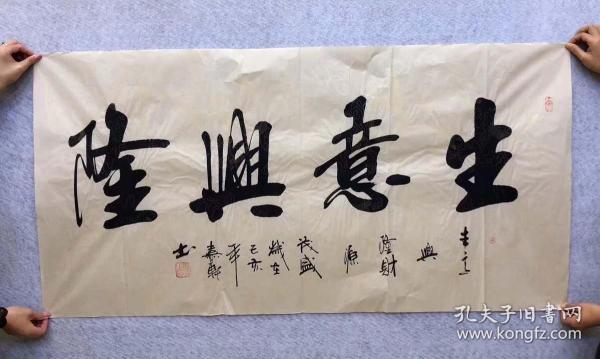 生意興隆
生意
興
隆財
源
茂盛
歲在
己亥
年
书
孔夫子旧书网
www.kongfz.com